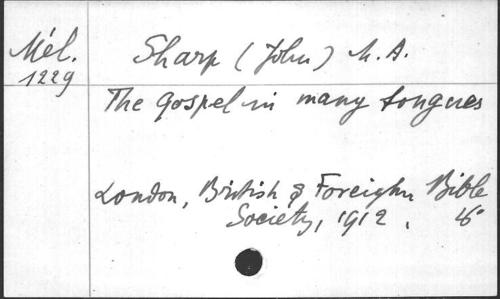 Mél.
1229
Sharp (John) M. A.
The gospel in many tongues
London, British & Foreign Bible
Society, 1912.